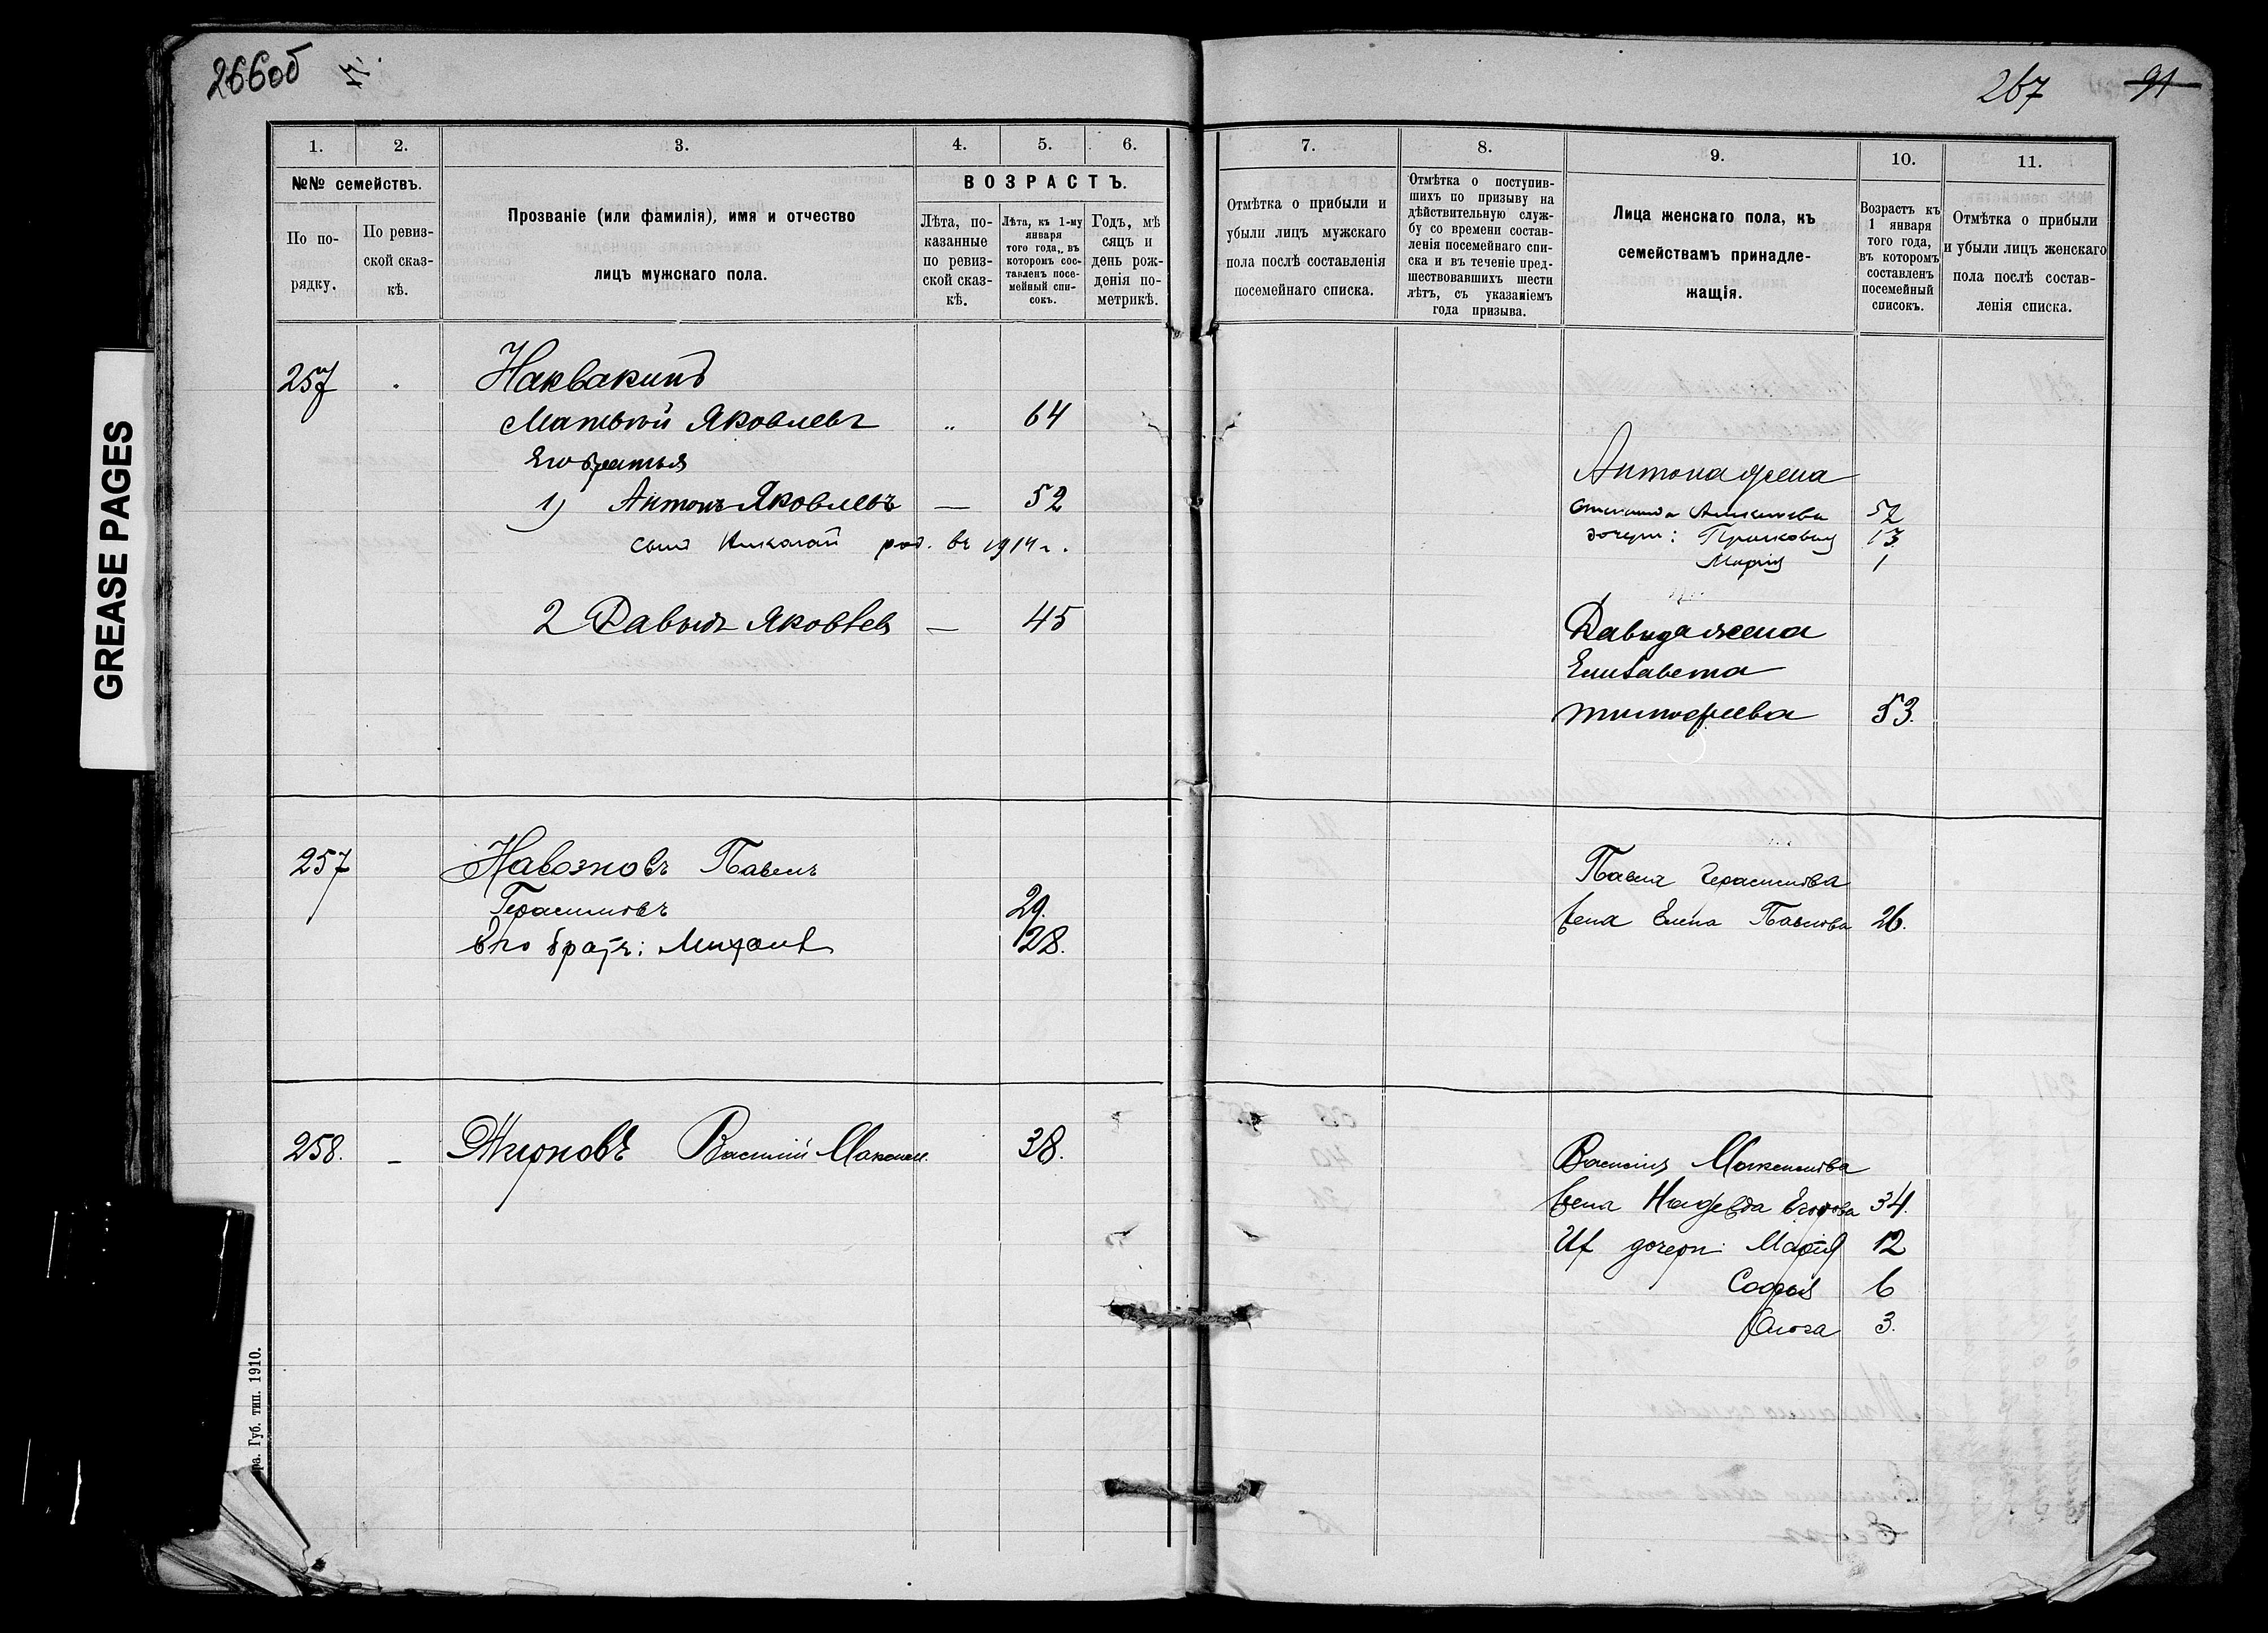 266об
267 91
GREASE PAGES
1. 2. 3. 4. 5. 6.
№№ семействъ.
По по-
рядку.
По ревиз-
ской сказ-
кѣ.
Прозваніе (или фамилія), имя и отчество
лицъ мужскаго пола.
ВОЗРАСТЪ.
Лѣта, по-
казанные
по ревиз-
ской сказ-
кѣ.
Лѣта, къ 1-му
января
того года, въ
которомъ сос-
тавленъ посе-
мейный спи-
сокъ.
Годъ, мѣ
сяцъ и
день рож-
денія по-
метрикѣ.
7. 8. 9. 10. 11.
Отмѣтка о прибыли и
убыли лицъ мужскаго
пола послѣ составленія
посемейнаго списка.
Отмѣтка о поступив-
шихъ по призыву на
дѣйствительную служ-
бу со времени состав-
ленія посемейнаго спи-
ска и въ теченіе пред-
шествовавшихъ шести
лѣтъ, съ указаніемъ
года призыва.
Лица женскаго пола, къ
семействамъ принадле-
жащія.
Возрастъ къ
1 января
того года,
въ которомъ
составленъ
посемейный
списокъ.
Отмѣтка о прибыли
и убыли лицъ женскаго
пола послѣ состав-
ленія списка.
257 Наквакинъ
Матвѣй Яковлевъ " 64
Его братья
1) Антонъ Яковлевъ — 52
сынъ Николай род. въ 1914 г.
2 Давыдъ Яковлев — 45
Антона жена
52
дочери: Прасковья 13
Марія 1
Давида жена
Елизавета
Тимофеева 53.
257 Навозновъ Павелъ
Герасимовъ 29.
Его братъ: Михаилъ 28.
Павла Герасимова
жена Елена Павлова 26.
258. — Василій Максим. 38.
Василія Максимова
жена Надежда Егорова 34.
Их дочери: Марія 12
Софья 6
Ольга 3.
ра. Губ. тип. 1910.